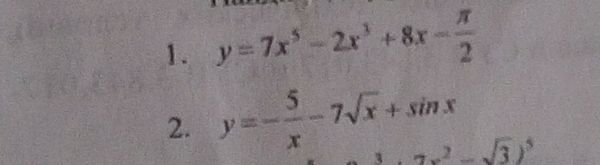 1. y = 7x⁵ − 2x³ + 8x − π/2
2. y = −5/x − 7√x + sin x